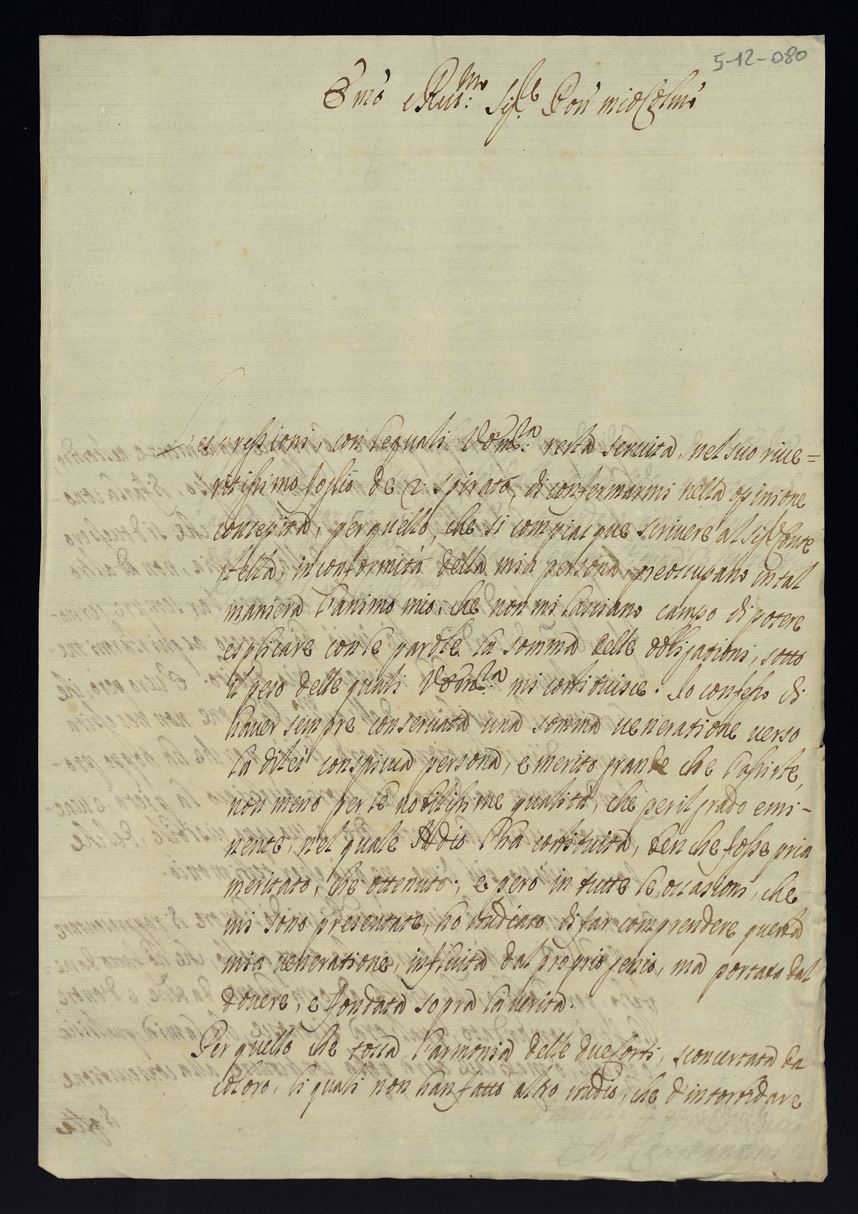 5-12-080
Em̃o e Reu.mo Sig.re Pron̄ mio Col.mo
Le espressioni, con le quali V. Em.za resta seruita, nel suo riue=
ritissimo foglio de 2. spirato, di confermarmi nella opinione
concepita, per quello, che si compiacque scriuere al Sig.r Conte
stella, in conformità della mia persona, preoccupano in tal
maniera l'animo mio, che non mi lasciano campo di potere
esplicare con le parole la somma delle obligationi, sotto
il peso delle quali V. Em.za mi costituisce. Io confesso di
hauer sempre conseruata una somma ueneratione uerso
la di lei conspicua persona, e merito grande che l'assiste,
non meno per le nobilissime qualità, che per il grado emi-
nente, nel quale Iddio l'ha costituita, ben che fosse pria
meritato, che ottenuto; e però in tutte le occasioni, che
mi sono presentate, ho studicato di far comprendere questa
mia ueneratione, influita dal proprio genio, ma portata dal
douere, e fondata sopra la uerità.
Per quello che tocca l'armonia delle due Corti, sconcertata da
coloro, li quali non han fatto altro studio, che d'intorbidare